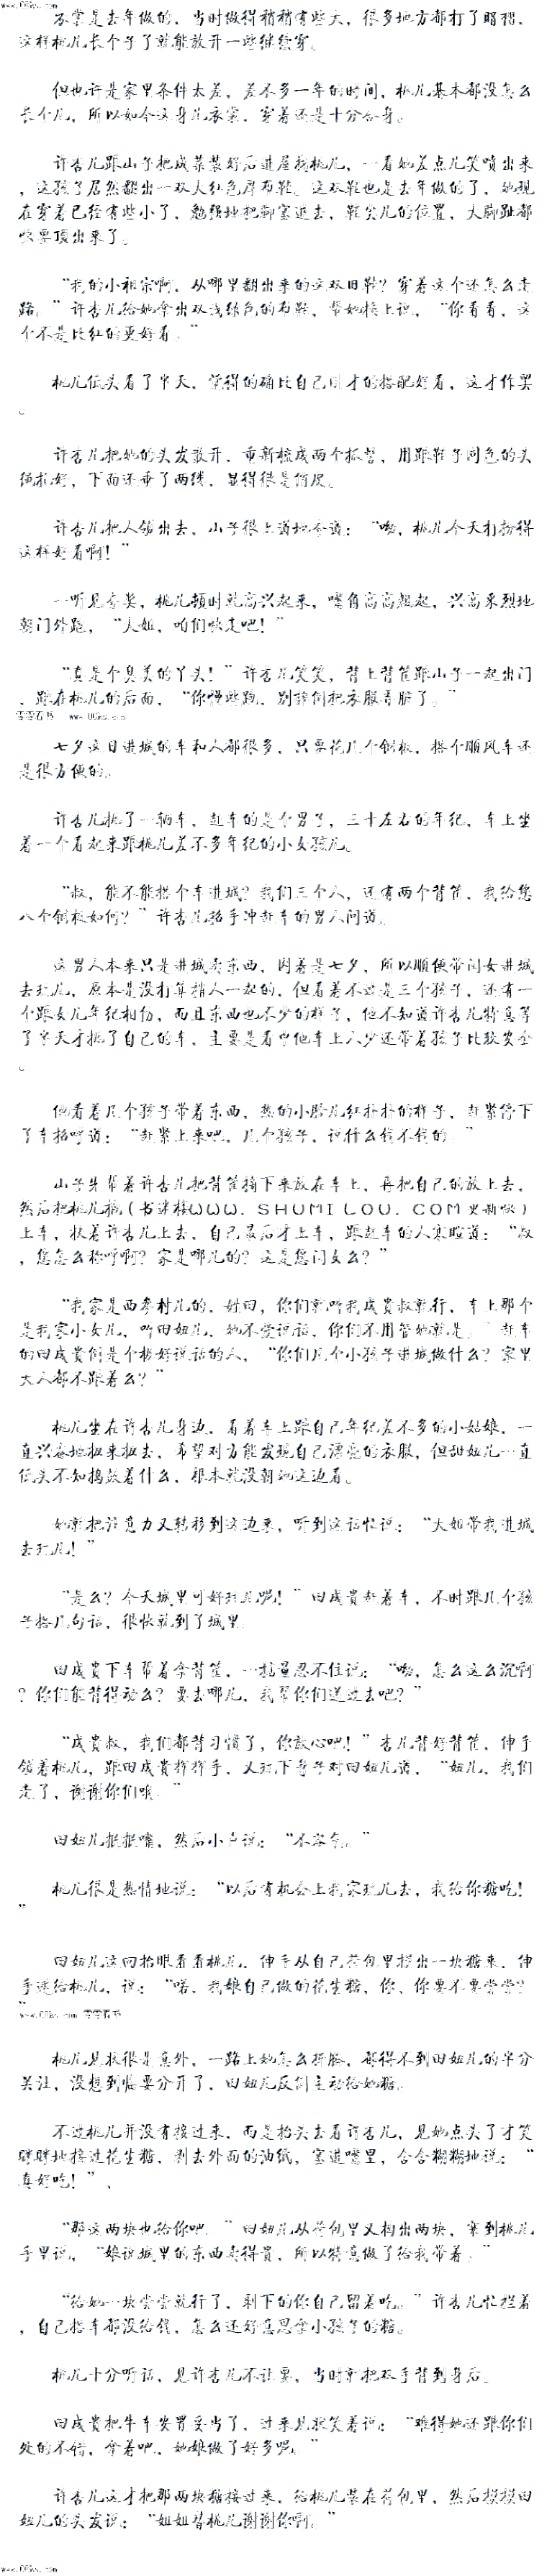 www.00ks.com
衣裳是去年做的，当时做得稍稍有些大，很多地方都打了暗褶，
这样桃儿长个子了就能放开一些继续穿。
但也许是家里条件太差，差不多一年的时间，桃儿基本都没怎么
长个儿，所以如今这身儿衣裳，穿着还是十分合身。
许杏儿跟山子把咸菜装好后进屋找桃儿，一看她差点儿笑喷出来
，这孩子居然翻出一双大红色厚布鞋。这双鞋也是去年做的了，她现
在穿着已经有些小了，勉强地把脚塞进去，鞋尖儿的位置，大脚趾都
快要顶出来了。
“我的小祖宗啊，从哪里翻出来的这双旧鞋？穿着这个还怎么走
路。”许杏儿给她拿出双浅绿色的布鞋，帮她换上说，“你看看，这
个不是比红的更好看。”
桃儿低头看了半天，觉得的确比自己刚才的搭配好看，这才作罢
。
许杏儿把她的头发散开，重新梳成两个抓髻，用跟鞋子同色的头
绳扎好，下面还垂了两绺，显得很是俏皮。
许杏儿把人领出去，山子很上道地夸道：“呦，桃儿今天打扮得
这样好看啊！”
一听见夸奖，桃儿顿时就高兴起来，嘴角高高翘起，兴高采烈地
朝门外跑，“大姐，咱们快走吧！”
“真是个臭美的丫头！”许杏儿笑笑，背上背筐跟山子一起出门
，跟在桃儿的后面，“你慢些跑，别摔倒把衣服弄脏了。”
零零看书 www.00ks.com
七夕这日进城的车和人都很多，只要花几个铜板，搭个顺风车还
是很方便的。
许杏儿挑了一辆车，赶车的是个男子，三十左右的年纪，车上坐
着一个看起来跟桃儿差不多年纪的小女孩儿。
“叔，能不能搭个车进城？我们三个人，还有两个背筐，我给您
八个铜板如何？”许杏儿招手冲赶车的男人问道。
这男人本来只是进城卖东西，因着是七夕，所以顺便带闺女进城
去玩儿，原本是没打算捎人一起的，但看着不过是三个孩子，还有一
个跟女儿年纪相仿，而且东西也不少的样子，他不知道许杏儿特意等
了半天才挑了自己的车，主要是看中他车上人少还带着孩子比较安全
。
他看着几个孩子带着东西，热的小脸儿红扑扑的样子，赶紧停下
了车招呼道：“赶紧上来吧，几个孩子，说什么钱不钱的。”
山子先帮着许杏儿把背筐摘下来放在车上，再把自己的放上去，
然后把桃儿抱（书迷楼WWW．SHUMILOU．COM更新快）
上车，扶着许杏儿上去，自己最后才上车，跟赶车的人寒暄道：“叔
，您怎么称呼啊？家是哪儿的？这是您闺女么？”
“我家是西参村儿的，姓田，你们就叫我成贵叔就行，车上那个
是我家小女儿，叫田妞儿，她不爱说话，你们不用管她就是。”赶车
的田成贵倒是个极好说话的人，“你们几个小孩子进城做什么？家里
大人都不跟着么？”
桃儿坐在许杏儿身边，看着车上跟自己年纪差不多的小姑娘，一
直兴奋地扭来扭去，希望对方能发现自己漂亮的衣服，但甜妞儿一直
低头不知捣鼓着什么，根本就没朝她这边看。
她就把注意力又转移到这边来，听到这话忙说：“大姐带我进城
去玩儿！”
“是么？今天城里可好玩儿呢！”田成贵赶着车，不时跟几个孩
子搭几句话，很快就到了城里。
田成贵下车帮着拿背筐，一掂量忍不住说：“呦，怎么这么沉啊
？你们能背得动么？要去哪儿，我帮你们送过去吧？”
“成贵叔，我们都背习惯了，你放心吧！”杏儿背好背筐，伸手
领着桃儿，跟田成贵挥挥手，又弯下身子对田妞儿道，“妞儿，我们
走了，谢谢你们啦。”
田妞儿抿抿嘴，然后小声说：“不客气。”
桃儿很是热情地说：“以后有机会上我家玩儿去，我给你糖吃！
”
田妞儿这回抬眼看看桃儿，伸手从自己荷包里摸出一块糖来，伸
手递给桃儿，说：“喏，我娘自己做的花生糖，你、你要不要尝尝？
”
www.00ks.com 零零看书
桃儿见状很是意外，一路上她怎么折腾，都得不到田妞儿的半分
关注，没想到临要分开了，田妞儿反倒主动给她糖。
不过桃儿并没有接过来，而是抬头去看许杏儿，见她点头了才笑
眯眯地接过花生糖，剥去外面的油纸，塞进嘴里，含含糊糊地说：“
真好吃！”，
“那这两块也给你吧。”田妞儿从荷包里又掏出两块，塞到桃儿
手里说，“娘说城里的东西卖得贵，所以特意做了给我带着。”
“给她一块尝尝就行了，剩下的你自己留着吃。”许杏儿忙拦着
，自己搭车都没给钱，怎么还好意思拿小孩子的糖。
桃儿十分听话，见许杏儿不让要，当时就把双手背到身后。
田成贵把牛车安置妥当了，过来见状笑着说：“难得她还跟你们
处的不错，拿着吧，她娘做了好多呢。”
许杏儿这才把那两块糖接过来，给桃儿装在荷包里，然后摸摸田
妞儿的头发说：“姐姐替桃儿谢谢你啊。”
www.00ks.com